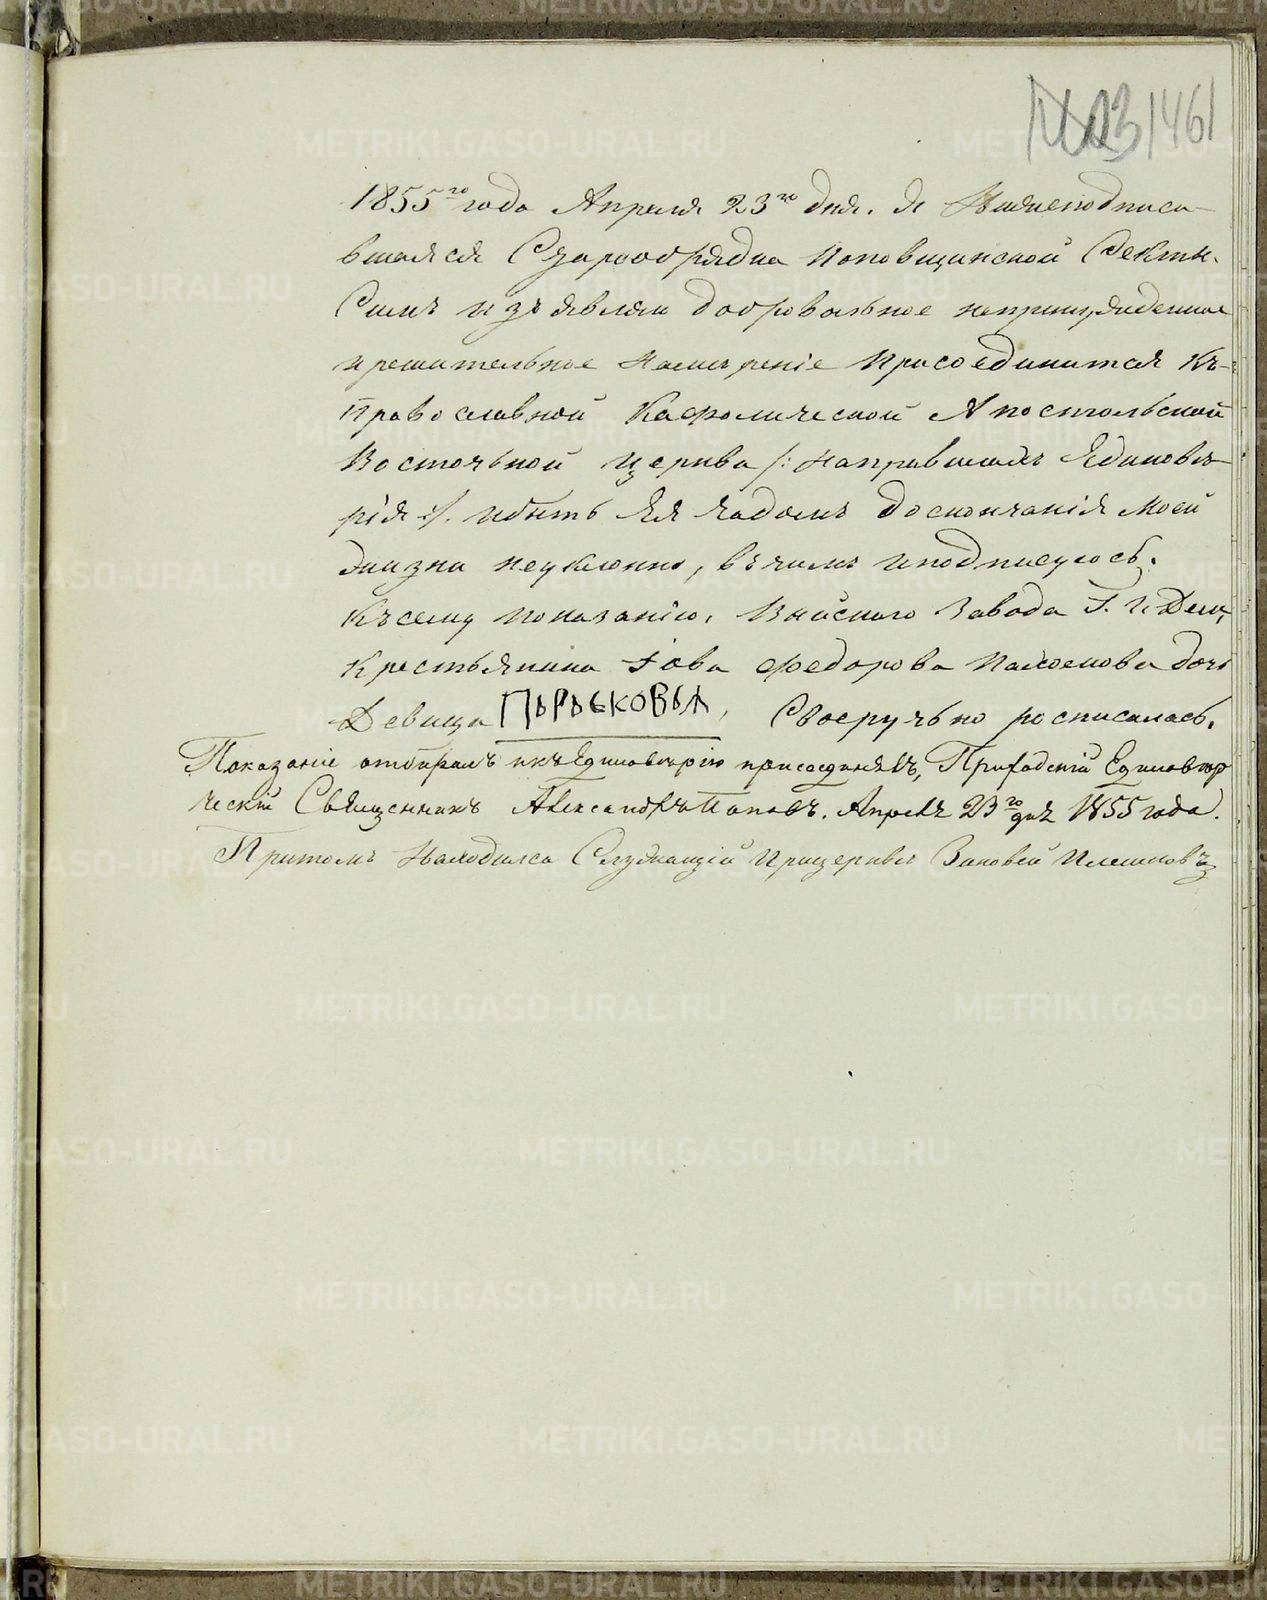 1461
1855го года Апреля 23го дня. Я Нижеподписа-
вшаяся Старообрядка Поповщинской Секты.
Симъ изъявляю добровольное непринужденное
и решительное Намерение Присоединится Къ-
Православной Кафолической Апостольской
Восточьной церкви /: На правилахъ Единове-
рія :/. и быть Ея чадомъ до скончанія Моей
жизни неуклонно, въ чемъ и подписуюсь.
Къ сему показанію, Выйского Завода Г.г. Дем,
Крестьянина Іова Федорова дочь
Девица Своеручьно росписалась.
Показаніе отбиралъ и къ Единоверію присоединялъ, Приходскій Единовер
ческій Священникъ Александръ Поповъ. Апреля 23го дня 1855 года.
При томъ Находился Служащій При церкви Зиновей
METRIKI.GASO-URAL.RU